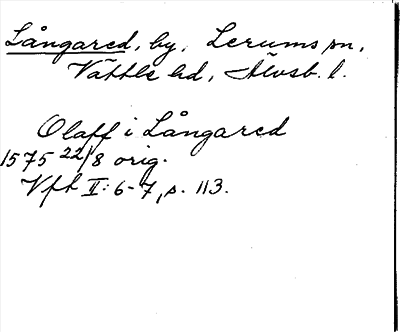 Långared, by, Lerums sn,
Vättle hd, Älvsb. l.
Olaff i Långared
1575 22/8 orig.
Vfh II: 6-7, s. 113.